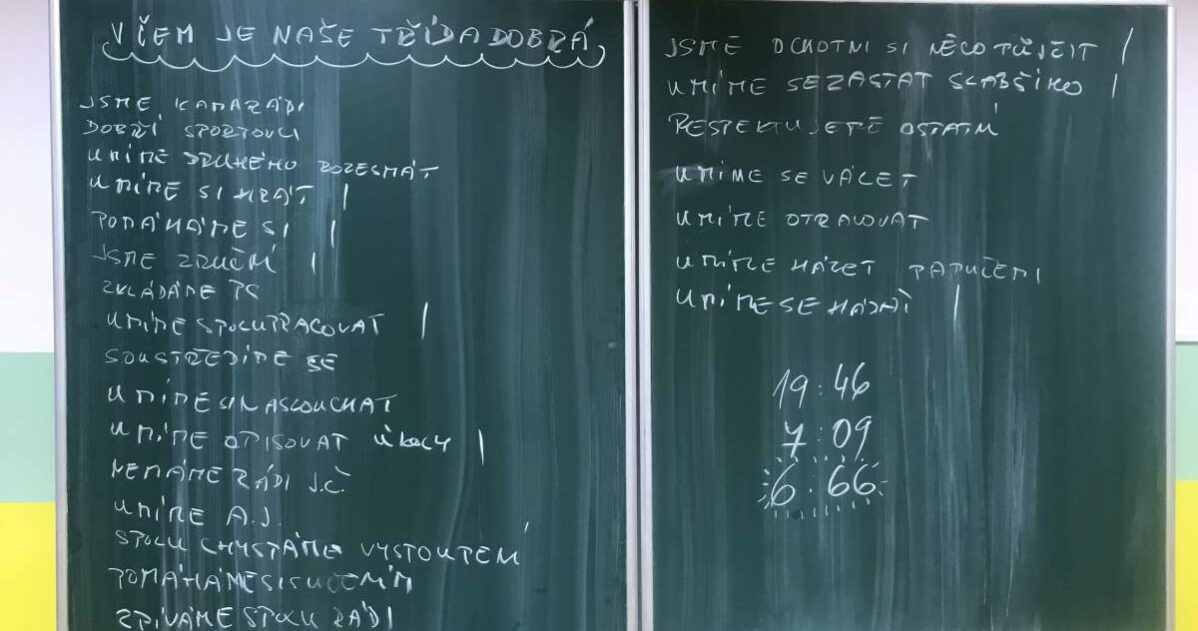 V ČEM JE NAŠE TŘÍDA DOBRÁ
JSME KAMARÁDI
DOBŘÍ SPORTOVCI
UMÍME DRUHÉHO ROZESMÁT
UMÍME SI HRÁT |
POMÁHÁME SI |
JSME ZRUČNÍ |
ZKLÁDÁME PS
UMÍME SPOLUPRACOVAT |
SOUSTŘEDÍME SE
UMÍME SI NASLOUCHAT
UMÍME OPISOVAT úkoly |
NEMÁME RÁDI J.Č.
UMÍME A.J.
SPOLU CHYSTÁME VYSTOUPENÍ
POMÁHÁME SI S UČENÍM
ZPÍVÁME SPOLU RÁDI
JSME OCHOTNI SI NĚCO PŮJČIT |
UMÍME SE ZASTAT SLABŠÍHO |
RESPEKTUJEME OSTATNÍ
UMÍME SE VÁLET
UMÍME OTRAVOVAT
UMÍME HÁZET PAPUČEMI
UMÍME SE HÁDAT |
19:46
7:09
6:66